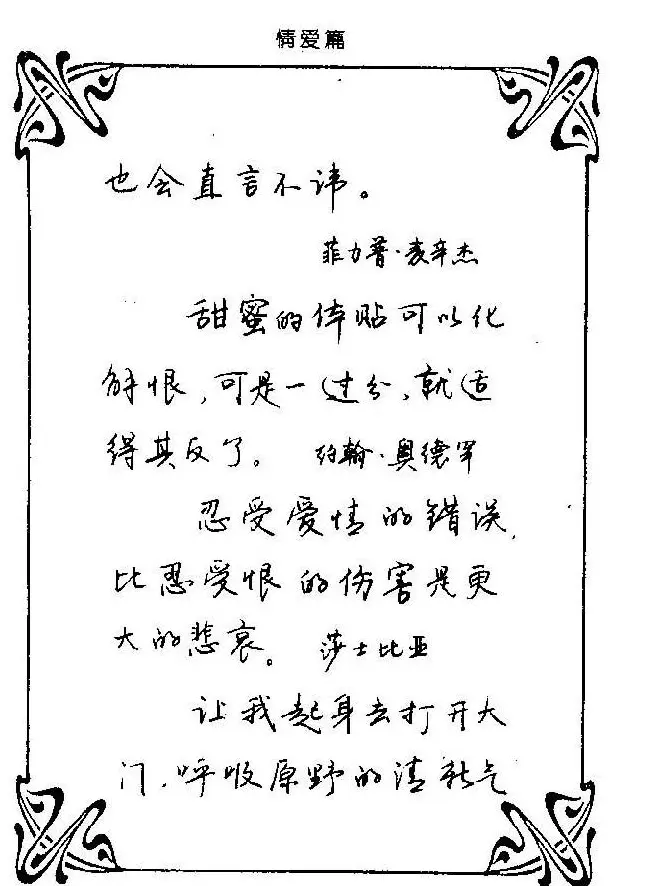 情爱篇
也会直言不讳。
菲力普·麦辛杰
甜蜜的体贴可以化
解恨，可是一过分，就适
得其反了。 约翰·奥德罕
忍受爱情的错误，
比忍受恨的伤害是更
大的悲哀。 莎士比亚
让我起身去打开大
门，呼吸原野的清新气